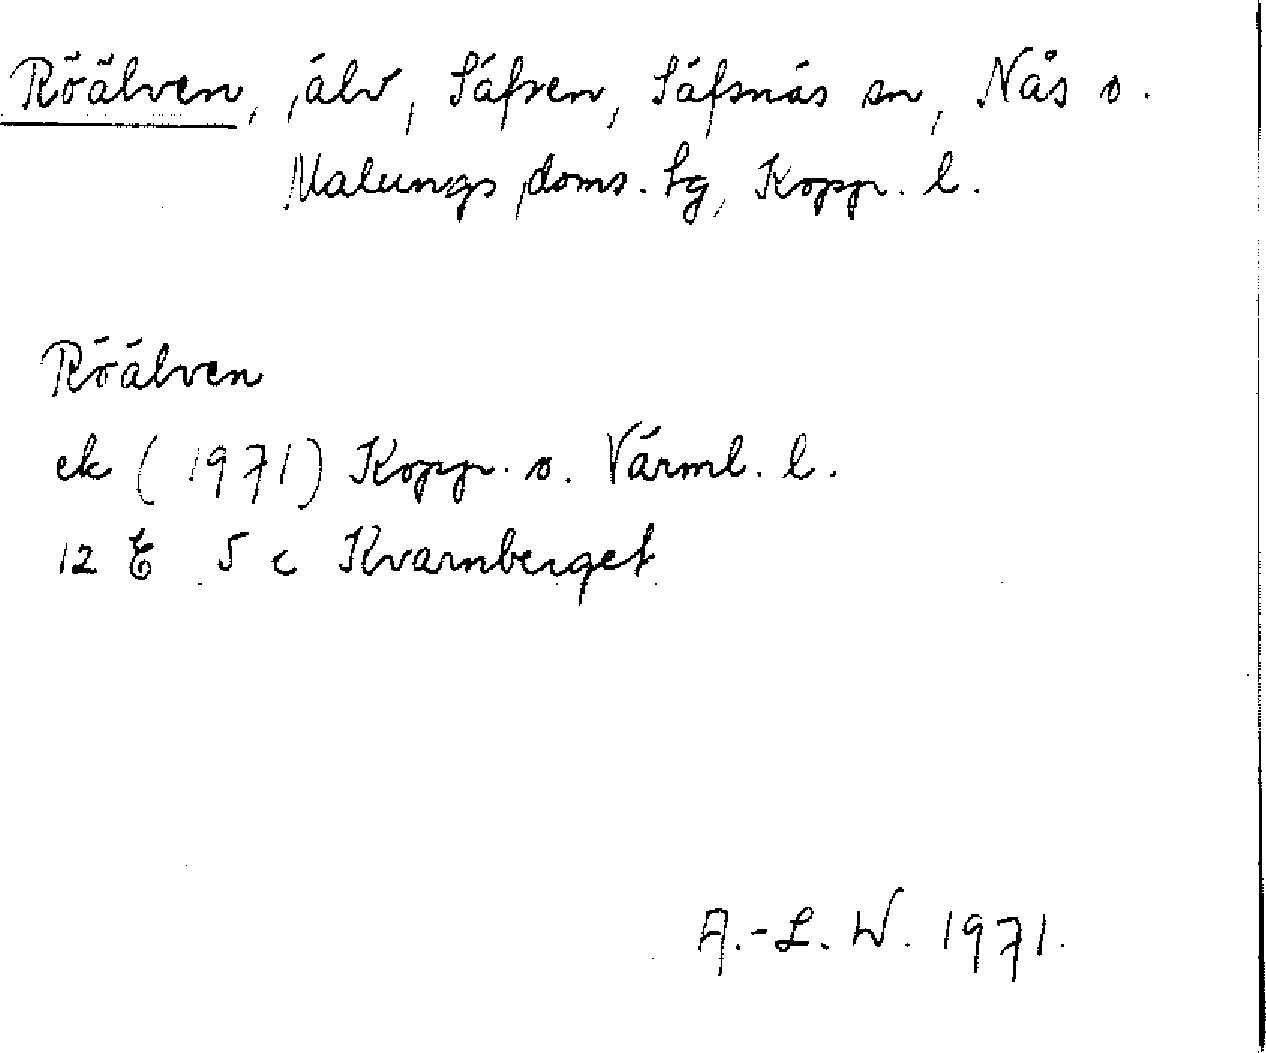 Röälven, älv, Säfsen, Säfsnäs sn, Nås o.
Malungs doms. tg, Kopp. l.
Röälven
ek (1971) Kopp. o. Värml. l.
12 E 5 c Kvarnberget
A.-L. W. 1971.